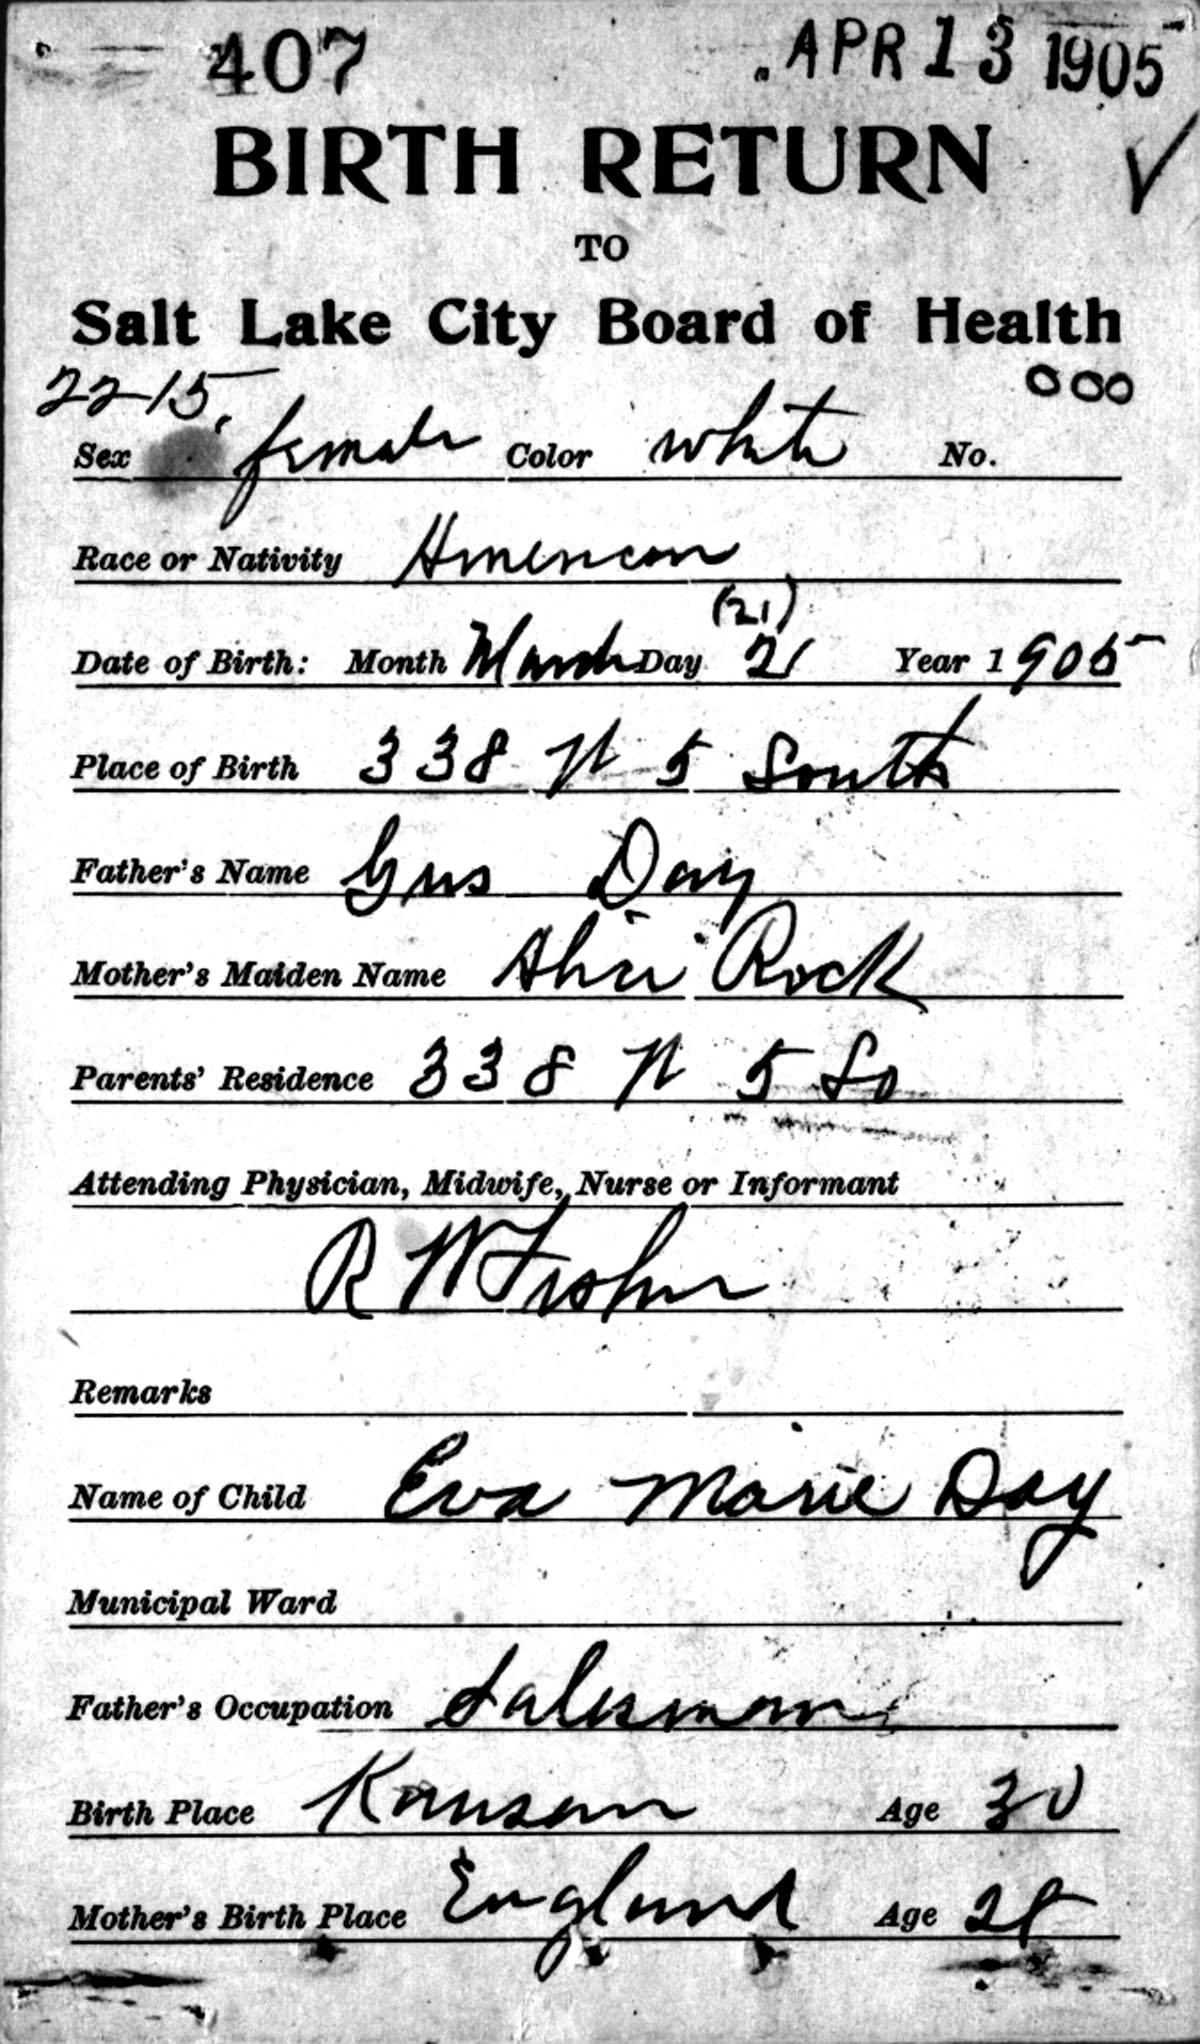 407 APR 13 1905
BIRTH RETURN
TO
Salt Lake City Board of Health
22-15, 000
Sex female Color white No.
Race or Nativity American
(21)
Date of Birth: Month March Day 21 Year 1905
Place of Birth 338 W 5 South
Father's Name Gus Day
Mother's Maiden Name Alice Rock
Parents' Residence 338 W 5 So
Attending Physician, Midwife, Nurse or Informant
R W Fisher
Remarks
Name of Child Eva Marie Day
Municipal Ward
Father's Occupation Salesman
Birth Place Kansas Age 30
Mother's Birth Place England Age